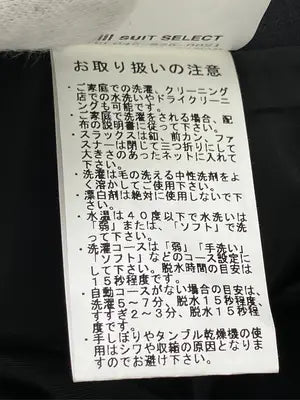 SUIT SELECT
お取り扱いの注意
・ご家庭での洗濯、クリーニング
店での水洗いやドライクリーニ
ングも可能です。
・ご家庭で洗濯をされる場合、配
布の説明書に従って下さい。
・スラックスは釦、前カン、ファ
スナーは閉じて三つ折りにして
大きさのあったネットに入れて
下さい。
・洗濯は毛の洗える中性洗剤をよ
く溶かしてご使用下さい。
・漂白剤は絶対に使用しないで下
さい。
・水温は40度以下で水洗いは
「弱」または、「ソフト」で洗
って下さい。
・洗濯コースは「弱」「手洗い」
「ソフト」などのコース設定に
して下さい。脱水時間の目安は
15秒程度です。
・自動コースがない場合の目安は、
洗濯5~7分、脱水15秒程度、
すすぎ2~3分、脱水15秒程
度です。
・手しぼりやタンブル乾燥機の使
用はシワや収縮の原因となりま
すのでお避け下さい。